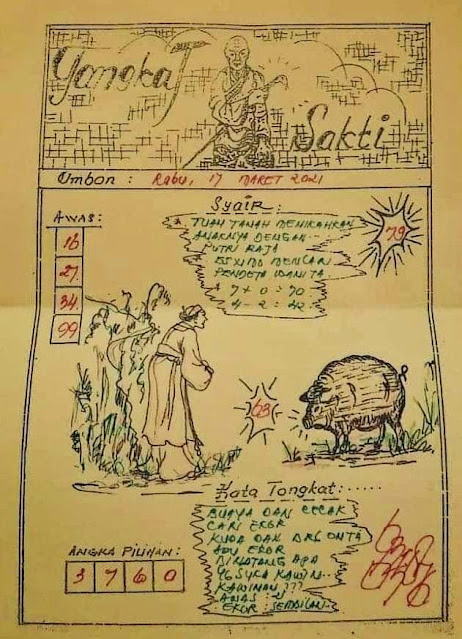 Tongkat Sakti
Umbon : RABU, 17 MARET 2021
AWAS:
16
27
34
99
Syair:
* TUAN TANAH MENIKAHKAN
ANAKNYA DENGAN..
PUTRI RAJA
ESKIMO MENCARI
PENDETA WANITA..
+ 7 + 0 = 70
4 - 2 = 42
79
63
Kata Tongkat:.....
BUAYA DAN CECAK
CARI EKOR
KUDA DAN ONTA
ADU EKOR
BINATANG APA
YG SUKA KAWIN..
KAWINAN ???
AWAS:
EKOR SEMBILAN..
ANGKA PILIHAN:
3 7 6 0